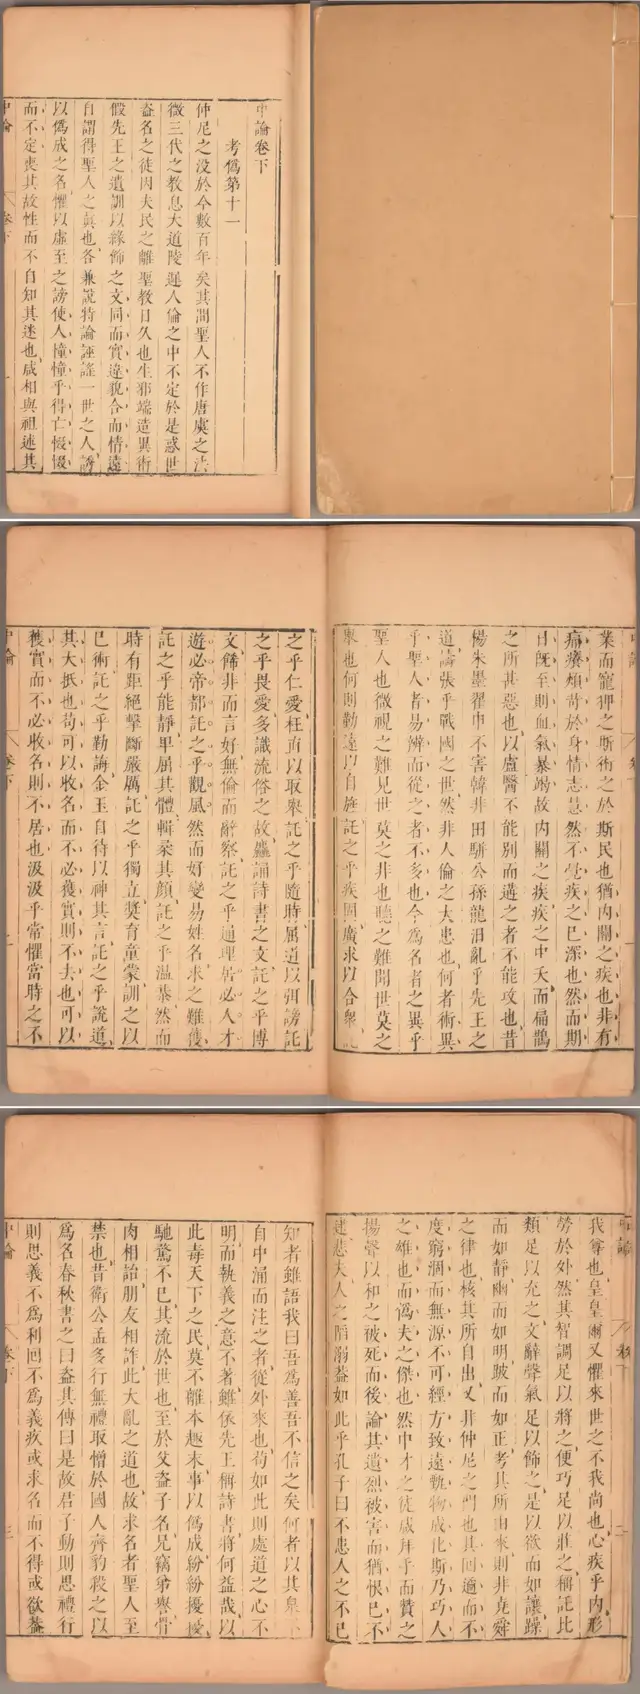 中論卷下
考僞第十一
仲尼之没於今數百年矣其間聖人不作唐虞之法
微三代之教息大道陵遲人倫之中不定於是惑世
盜名之徒因夫民之離聖教日久也生邪端造異術
假先王之遺訓以緣飾之文同而實違貌合而情遠
自謂得聖人之眞也各兼說特論誣謠一世之人誘
以僞成之名懼以虛至之謗使人憧憧乎得亡惙惙
而不定喪其故性而不自知其迷也咸相與祖述其
中論
卷下
一
業而寵狎之斯術之於斯民也猶内關之疾也非有
痛癢煩苛於身情志慧然不覺疾之已深也然而期
日旣至則血氣暴竭故内關之疾疾之中夭而扁鵲
之所甚惡也以盧醫不能別而遘之者不能攻也昔
楊朱墨翟申不害韓非田騈公孫龍汨亂乎先王之
道譸張乎戰國之世然非人倫之大患也何者術異
乎聖人者易辨而從之者不多也今爲名者之異乎
聖人也微視之難見世莫之非也聽之難聞世莫之
舉也何則勤遠以自旌託之乎疾固廣求以合衆託
之乎仁愛枉直以取舉託之乎隨時屈道以弭謗託
之乎畏愛多識流俗之故麤誦詩書之文託之乎博
文飾非而言好無倫而辭察託之乎通理居必人才
遊必帝都託之乎觀風然而好變易姓名求之難獲
託之乎能靜卑屈其體輯柔其顔託之乎温恭然而
時有距絕擊斷嚴厲託之乎獨立奬育童蒙訓之以
已術託之乎勤誨金玉自待以神其言託之乎說道
其大抵也苟可以收名而不必獲實則不去也可以
獲實而不必收名則不居也汲汲乎常懼當時之不
中論
卷下
二
我尊也皇皇爾又懼來世之不我尚也心疾乎内形
勞於外然其智調足以將之便巧足以莊之稱託比
類足以充之文辭聲氣足以飾之是以欲而如讓躁
而如靜幽而如明跛而如正考其所由來則非堯舜
之律也核其所自出又非仲尼之門也其回遹而不
度窮涸而無源不可經方致遠甄物成化斯乃巧人
之雄也而僞夫之傑也然中才之徒咸拜手而贊之
揚聲以和之被死而後論其遺烈被害而猶恨已不
逮悲夫人之陷溺蓋如此乎孔子曰不患人之不已
知者雖語我曰吾爲善吾不信之矣何者以其泉不
自中涌而注之者從外來也苟如此則處道之心不
明而執義之意不著雖依先王稱詩書將何益哉以
此毒天下之民莫不離本趣末事以僞成紛紛擾擾
馳騖不已其流於世也至於父盜子名兄竊弟譽骨
肉相詒朋友相詐此大亂之道也故求名者聖人至
禁也昔衛公孟多行無禮取憎於國人齊豹殺之以
爲名春秋書之曰盜其傳曰是故君子動則思禮行
則思義不爲利回不爲義疚或求名而不得或欲蓋
中論
卷下
三